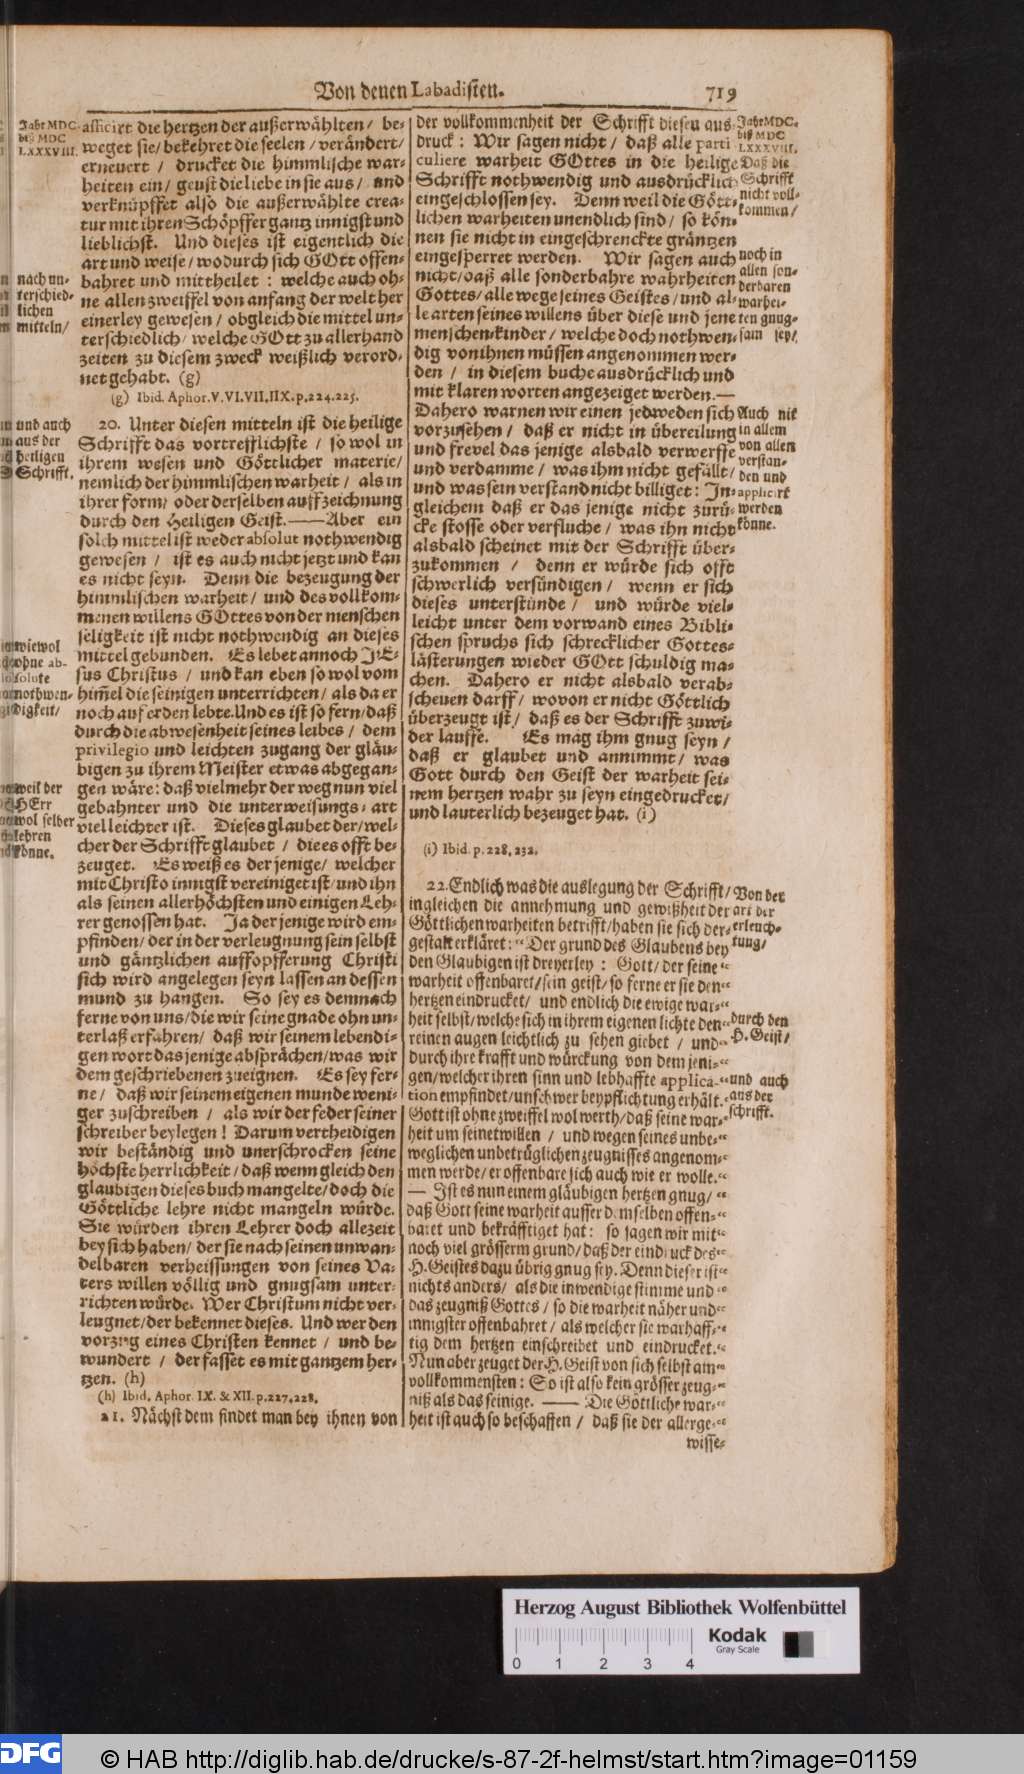 Von denen Labadisten. 719
Jahr MDC.
biß MDC
LXXXVIII.
afficirt die hertzen der außerwählten / be-
weget sie / bekehret die seelen / verändert /
erneuert / drucket die himmlische war-
heiten ein / geust die liebe in sie aus / und
verknüpffet also die außerwählte crea-
tur mit ihren Schöpffer gantz innigst und
lieblichst. Und dieses ist eigentlich die
art und weise / wodurch sich GOtt offen-
bahret und mittheilet : welche auch oh-
ne allen zweiffel von anfang der welt her
einerley gewesen / obgleich die mittel un-
terschiedlich / welche GOtt zu allerhand
zeiten zu diesem zweck weißlich verord-
net gehabt. (g)
nach un-
terschied-
lichen
mitteln /
(g) Ibid. Aphor. V. VI. VII, IIX. p. 224. 225.
20. Unter diesen mitteln ist die heilige
Schrifft das vortrefflichste / so wol in
ihrem wesen und Göttlicher materie /
nemlich der himmlischen warheit / als in
ihrer form / oder derselben auffzeichnung
durch den Heiligen Geist. —— Aber ein
solch mittel ist weder absolut nothwendig
gewesen / ist es auch nicht jetzt und kan
es nicht seyn. Denn die bezeugung der
himmlischen warheit / und des vollkom-
menen willens GOttes von der menschen
seligkeit ist nicht nothwendig an dieses
mittel gebunden. Es lebet annoch JE-
sus Christus / und kan eben so wol vom
him̃el die seinigen unterrichten / als da er
noch auf erden lebte. Und es ist so fern / daß
durch die abwesenheit seines leibes / dem
privilegio und leichten zugang der gläu-
bigen zu ihrem Meister etwas abgegan-
gen wäre: daß vielmehr der weg nun viel
gebahnter und die unterweisungs-art
viel leichter ist. Dieses glaubet der / wel-
cher der Schrifft glaubet / die es offt be-
zeuget. Es weiß es der jenige / welcher
mit Christo innigst vereiniget ist / und ihn
als seinen allerhöchsten und einigen Leh-
rer genossen hat. Ja der jenige wird em-
pfinden / der in der verleugnung sein selbst
und gäntzlichen auffopfferung Christi
sich wird angelegen seyn lassen an dessen
mund zu hangen. So sey es demnach
ferne von uns / die wir seine gnade ohn un-
terlaß erfahren / daß wir seinem lebendi-
gen wort das jenige absprächen / was wir
dem geschriebenen zueignen. Es sey fer-
ne / daß wir seinem eigenen munde weni-
ger zuschreiben / als wir der feder seiner
schreiber beylegen ! Darum vertheidigen
wir beständig und unerschrocken seine
höchste herrlichkeit / daß wenn gleich den
glaubigen dieses buch mangelte / doch die
Göttliche lehre nicht mangeln würde.
Sie würden ihren Lehrer doch allezeit
bey sich haben / der sie nach seinen unwan-
delbaren verheissungen von seines Va-
ters willen völlig und gnugsam unter-
richten würde. Wer Christum nicht ver-
leugnet / der bekennet dieses. Und wer den
vorzug eines Christen kennet / und be-
wundert / der fasset es mit gantzem her-
tzen. (h)
und auch
aus der
heiligen
Schrifft,
wiewol
ohne ab-
solute
nothwen-
digkeit /
weil der
HErr
wol selber
lehren
könne.
(h) Ibid. Aphor. IX. & XII. p. 227. 228.
21. Nächst dem findet man bey ihnen von
der vollkommenheit der Schrifft diesen aus-
druck : Wir sagen nicht / daß alle parti
culiere warheit GOttes in die heilige
Schrifft nothwendig und ausdrücklich
eingeschlossen sey. Denn weil die Gött-
lichen warheiten unendlich sind / so kön-
nen sie nicht in eingeschrenckte gräntzen
eingesperret werden. Wir sagen auch
nicht / daß alle sonderbahre wahrheiten
Gottes / alle wege seines Geistes / und al-
le arten seines willens über diese und jene
menschen-kinder / welche doch nothwen-
dig von ihnen müssen angenommen wer-
den / in diesem buche ausdrücklich und
mit klaren worten angezeiget werden. —
Dahero warnen wir einen jedweden sich
vorzusehen / daß er nicht in übereilung
und frevel das jenige alsbald verwerffe
und verdamme / was ihm nicht gefällt /
und was sein verstand nicht billiget : In-
gleichem daß er das jenige nicht zurü-
cke stosse oder verfluche / was ihn nicht
alsbald scheinet mit der Schrifft über-
zukommen / denn er würde sich offt
schwerlich versündigen / wenn er sich
dieses unterstünde / und würde viel-
leicht unter dem vorwand eines Bibli-
schen spruchs sich schrecklicher Gottes-
lästerungen wieder GOtt schuldig ma-
chen. Dahero er nicht alsbald verab-
scheuen darff / wovon er nicht Göttlich
überzeugt ist / daß es der Schrifft zuwi-
der lauffe. Es mag ihm gnug seyn /
daß er glaubet und annimmt / was
Gott durch den Geist der warheit sei-
nem hertzen wahr zu seyn eingedrucket /
und lauterlich bezeuget hat. (i)
Jahr MDC.
biß MDC
LXXXVIII.
Daß die
Schrifft
nicht voll-
kommen /
noch in
allen son-
derbaren
warhei-
ten gnug-
sam sey /
Auch nie
in allem
von allen
verstan-
den und
applicirt
werden
könne.
(i) Ibid. p. 228. 232.
22. Endlich was die auslegung der Schrifft /
ingleichen die annehmung und gewißheit der
Göttlichen warheiten betrifft / haben sie sich der-
gestalt erkläret : “ Der grund des Glaubens bey
den Glaubigen ist dreyerley : Gott / der seine “
warheit offenbaret / sein geist / so ferne er sie den “
hertzen eindrucket / und endlich die ewige war- “
heit selbst / welche sich in ihrem eigenen lichte den “
reinen augen leichtlich zu sehen giebet / und “
durch ihre krafft und würckung von dem jeni- “
gen / welcher ihren sinn und lebhaffte applica- “
tion empfindet / unschwer beypflichtung erhält. “
Gott ist ohne zweiffel wol werth / daß seine war- “
heit um seinetwillen / und wegen seines unbe- “
weglichen unbetrüglichen zeugnisses angenom- “
men werde / er offenbare sich auch wie er wolle. “
— Ist es nun einem gläubigen hertzen gnug / “
daß Gott seine warheit ausser demselben offen- “
baret und bekräfftiget hat : so sagen wir mit “
noch viel grösserm grund / daß der eindruck des “
H. Geistes dazu übrig gnug sey. Denn dieser ist “
nichts anders / als die inwendige stimme und “
das zeugniß Gottes / so die warheit näher und “
innigster offenbahret / als welcher sie warhaff- “
tig dem hertzen einschreibet und eindrucket. “
Nun aber zeuget der H. Geist von sich selbst am “
vollkommensten : So ist also kein grösser zeug- “
niß als das seinige. —— Die Göttliche war- “
heit ist auch so beschaffen / daß sie der allerge- “
wisse-
Von der
art der
erleuch-
tung /
durch den
H. Geist /
und auch
aus der
schrifft.
Herzog August Bibliothek Wolfenbüttel
Kodak
Gray Scale
0 1 2 3 4
DFG
© HAB http://diglib.hab.de/drucke/s-87-2f-helmst/start.htm?image=01159